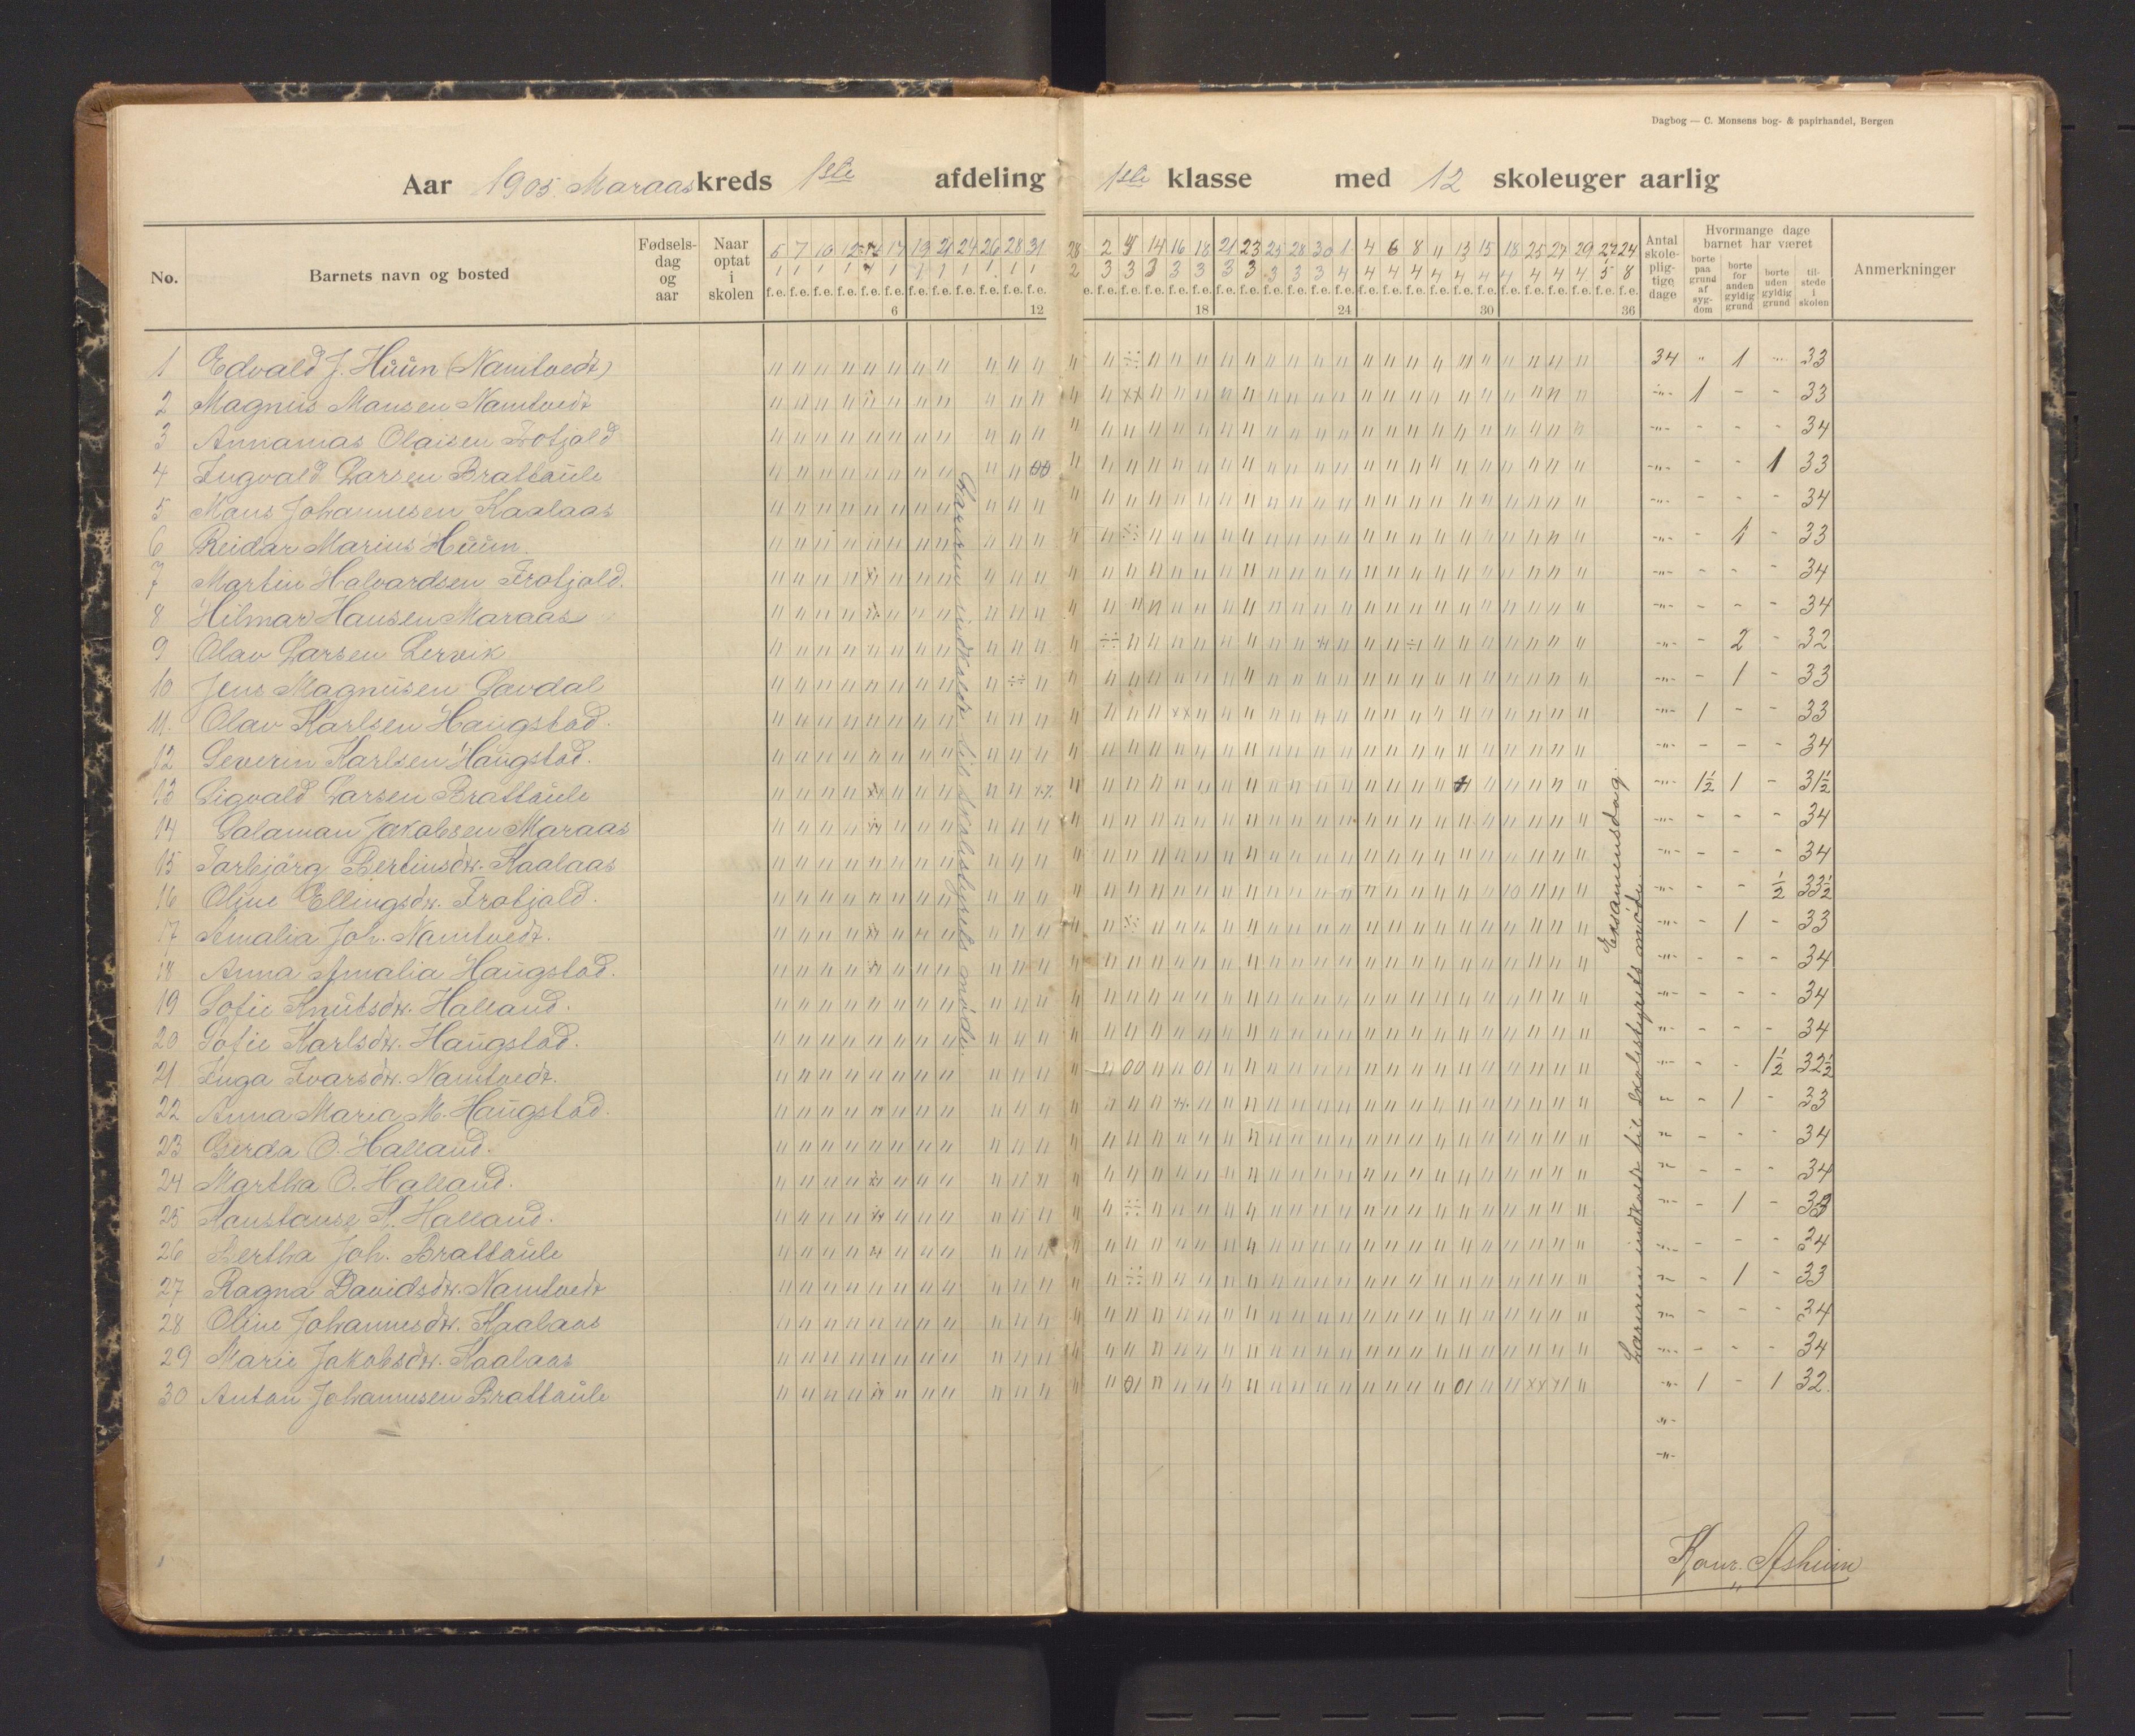 Dagbog — C. Monsens bog- & papirhandel, Bergen
Aar 1905. Maraas kreds 1ste afdeling 1ste klasse med 12 skoleuger aarlig
No. Barnets navn og bosted Fødsels-dag og aar Naar optat i skolen
5 7 10 12 14 17 19 21 24 26 28 31 28 2 9 14 16 18 21 23 25 28 30 1 4 6 8 11 13 15 18 25 27 29 27 24
1 1 1 1 1 1 1 1 1 1 1 1 2 3 3 3 3 3 3 3 3 3 3 4 4 4 4 4 4 4 4 4 4 4 5 8
f.e. f.e. f.e. f.e. f.e. f.e. f.e. f.e. f.e. f.e. f.e. f.e. e. f.e. f.e. f.e. f.e. f.e. f.e. f.e. f.e. f.e. f.e. f.e. f.e. f.e. f.e. f.e. f.e. f.e. f.e. f.e. f.e. f.e. f.e. f.e.
6 12 18 24 30 36
Antal skole-plig-tige dage
Hvormange dage barnet har været
borte paa grund af syg-dom
borte for anden gyldig grund
borte uden gyldig grund
til-stede i skolen
Anmerkninger
1 Edvald J. Huun (Namtvedt) 34 " 1 " 33
2 Magnus Mansen Namtvedt -"- 1 - - 33
3 Annanias Olaisen Frotjold -"- - - - 34
4 Ingvald Larsen Brattaule -"- - - 1 33
5 Mons Johannesen Kaalaas -"- - - - 34
6 Reidar Marius Huun. -"- - 1 - 33
7 Martin Halvardsen Frotjold. -"- - - - 34
8 Hilmar Hansen Maraas -"- - - - 34
9 Olav Larsen Lervik -"- - 2 - 32
10 Jens Magnusen Lavdal -"- - 1 - 33
11. Olav Karlsen Haugstad. -"- 1 - - 33
12 Severin Karlsen Haugstad. -"- - - - 34
13 Sigvald Larsen Brattaule -"- 1½ 1 - 31½
14 Salamon Jakobsen Maraas -"- - - - 34
15 Torbjørg Bertinsdtr. Kaalaas -"- - - - 34
16 Oline Ellingsdtr. Frotjold. -"- - - ½ 33½
17 Amalia Joh. Namtvedt. -"- - 1 - 33
18 Anna Amalia Haugstad. -"- - - - 34
19 Sofie Knutsdtr. Halland. -"- - - - 34
20 Sofie Karlsdtr. Haugstad. "- - - - 34
21 Inga Ivarsdtr. Namtvedt. -"- - - 1½ 32½
22 Anna Maria M. Haugstad. -"- - 1 - 33
23 Gerda O. Halland. -"- - - - 34
24 Martha O. Halland. -"- - - - 34
25 Konstanse K. Halland. -"- - 1 - 33
26 Bertha Joh. Brattaule -"- - - - 34
27 Ragna Davidsdtr. Namtvedt -"- - 1 - 33
28 Oline Johannesdtr. Kaalaas -"- - - - 34
29 Marie Jakobsdtr. Kaalaas -"- - - - 34
30 Anton Johannesen Brattaule -"- 1 - 1 32.
-"-
-"-
Læreren indkaldt til skolestyrets møde.
Eksamensdag.
Læreren indkaldt til skolestyrets møde.
Konr. Asheim